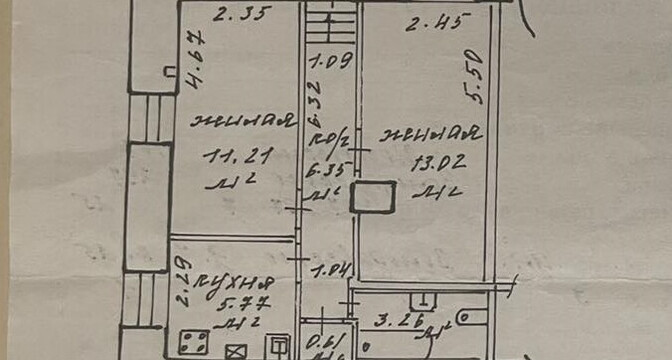 2.35
4.67
жилая
11.21
м²
1.09
6.32
кор
6.35
м²
2.45
5.50
жилая
13.02
м²
1.04
2.29
кухня
5.77
м²
3.26
м²
0.61